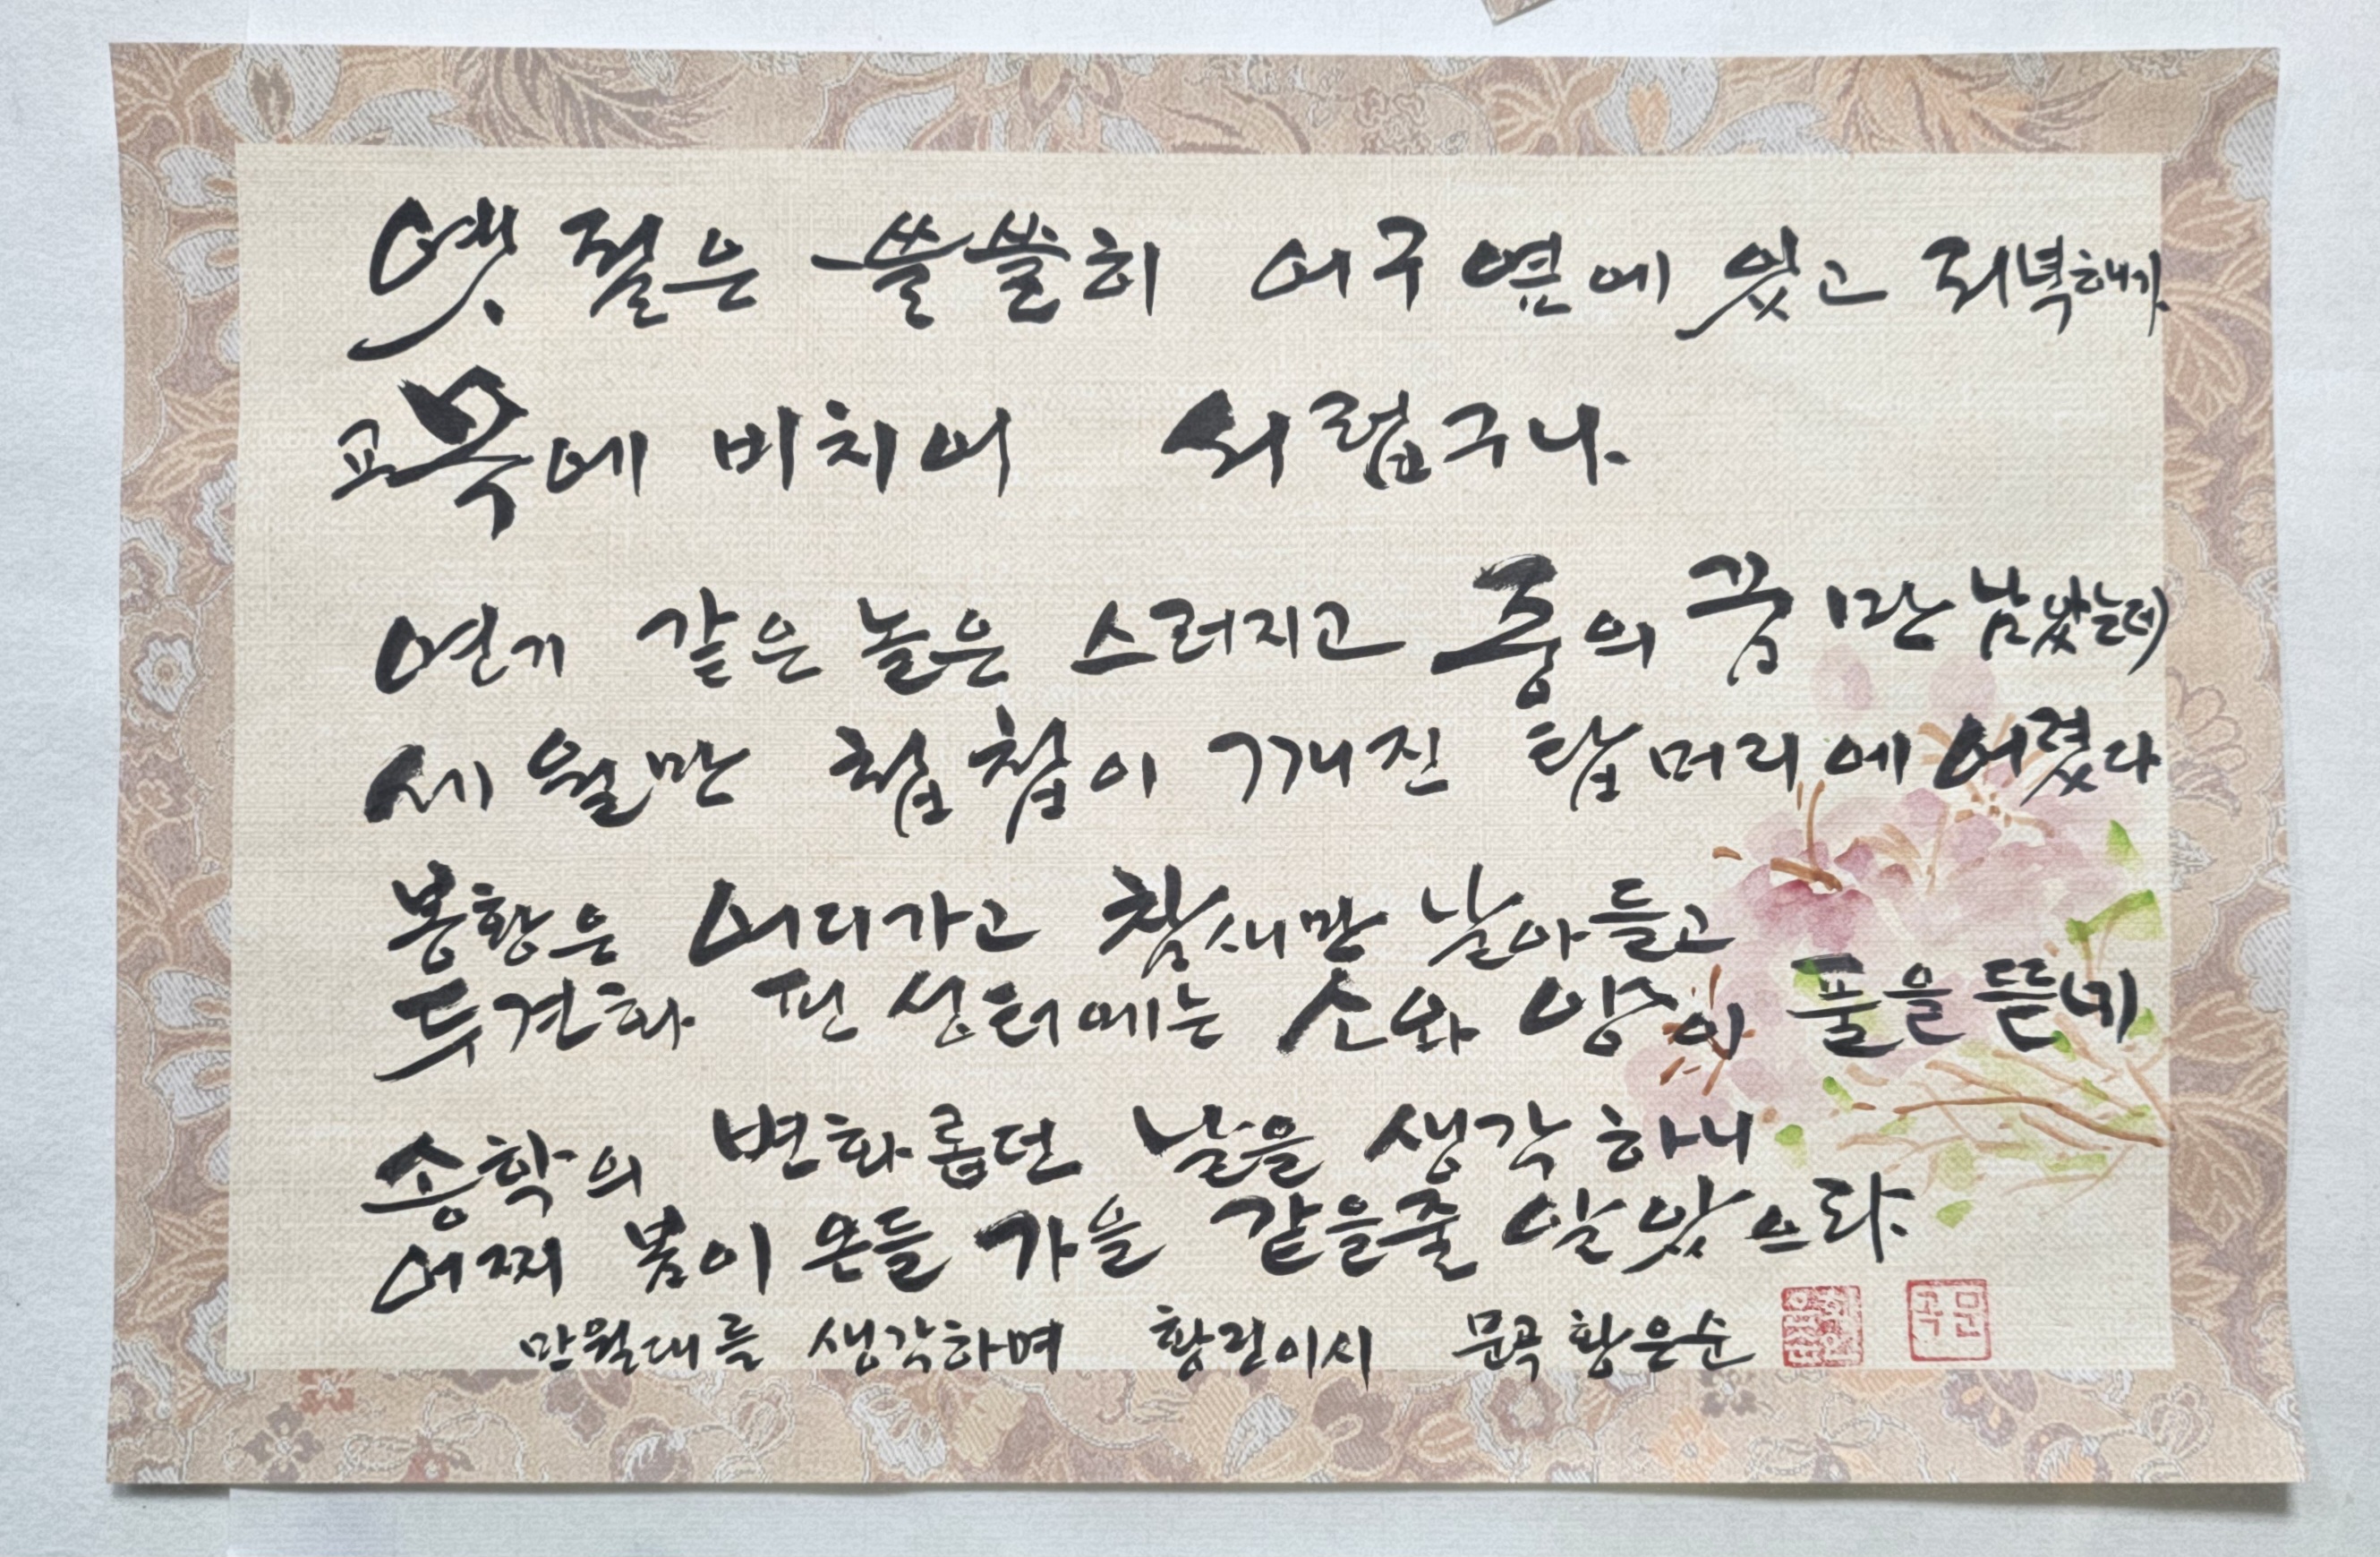 옛 절은 쓸쓸히 어구 옆에 있고 저녁해가
교목에 비치어 서럽구나.
연기 같은 놀은 스러지고 중의 꿈만 남았는데
세월만 첩첩이 깨진 탑머리에 어렸다
봉황은 어디가고 참새만 날아들고
두견화 핀 성터에는 소와 양이 풀을 뜯네
송학의 번화롭던 날을 생각하니
어찌 봄이 온들 가을 같을줄 알았으랴.
만월대를 생각하며 황진이시 문곡 황은순
문곡